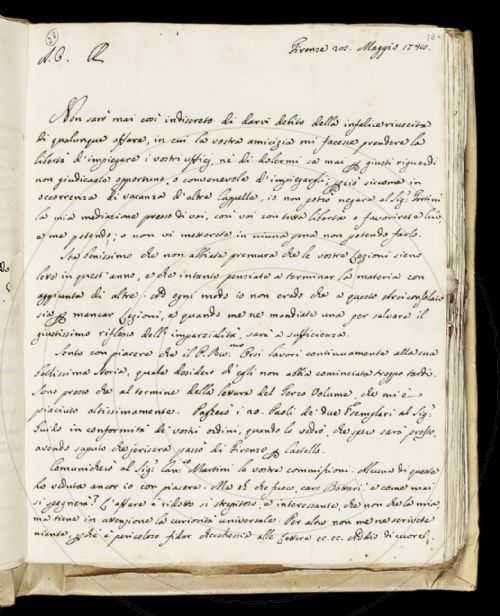 23
58
A. C. Firenze 20. Maggio 1740.
Non sarò mai così indiscreto di darvi debito della infelice riuscita
di qualunque affare, in cui la vostra amicizia mi facesse prendere la
libertà d'impiegare i vostri uffizj, nè di dolermi se mai giusti riguardi
non giudicaste opportuno, o convenevole d'impiegargli, siccome in
occorrenza di vacanza d'altre Cappelle, io non potrò negare al Sig.
la mia mediazione presso di voi, così voi con tutta libertà o favorirete lui,
e me potendo; o non vi metterete in niuna pena non potendo farlo.
Sta benissimo che non abbiate premura che le vostre Lezioni sieno
lette in quest'anno, e che intanto pensiate a terminar la materia con
aggiunta di altre; ad ogni modo io non credo che a questo
sia mancar Lezioni, e quando me ne mandiate una per salvare il
giustissimo riflesso dell'imparzialità, sarà a sufficienza.
Sento con piacere che il P. Orsi lavori continuamente alla sua
bellissima Storia, quale desidero ch'egli non abbia cominciata troppo tardi.
Sono presso che al termine della lettura del Terzo Volume, che mi è
piaciuto altissimamente. Pagherò i 20. Paoli de' due Esemplari al Sig.
Guido in conformità de' vostri ordini, quando lo vedrò, che spero sarà presto,
avendo saputo che jersera passò di Firenze Castello.
Comunicherò al Sig. Can.co Martini le vostre commissioni. Alcuna di queste
ho veduta ancor io con piacere. Ma oh che fuoco, caro Bottari! e come mai
si spegnerà? L'affare è ridotto sì strepitoso, e interessante, che non che la mia,
ma tiene in attenzione la curiosità universale. Per altro non me ne scrivete
niente, è pericoloso fidar checchessia alle Lettere ec. ec. Addio di cuore.